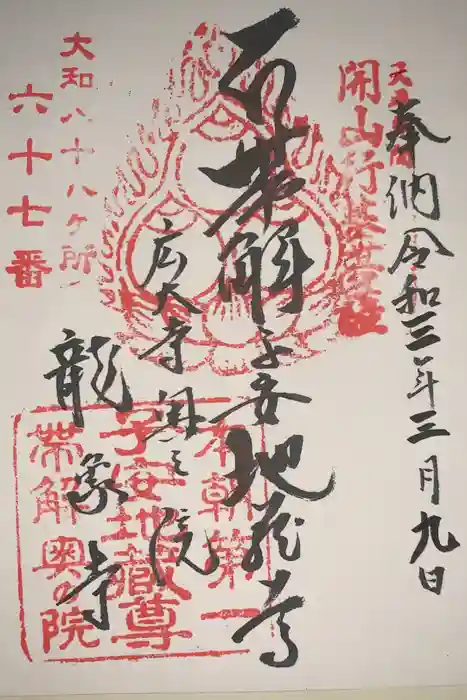 奉納令和三年三月九日
開山行基菩薩
帯解子安地蔵尊
広大寺奥之院
龍象寺
大和八十八ヶ所
六十七番
本朝第一
子安地蔵尊
帯解奥の院